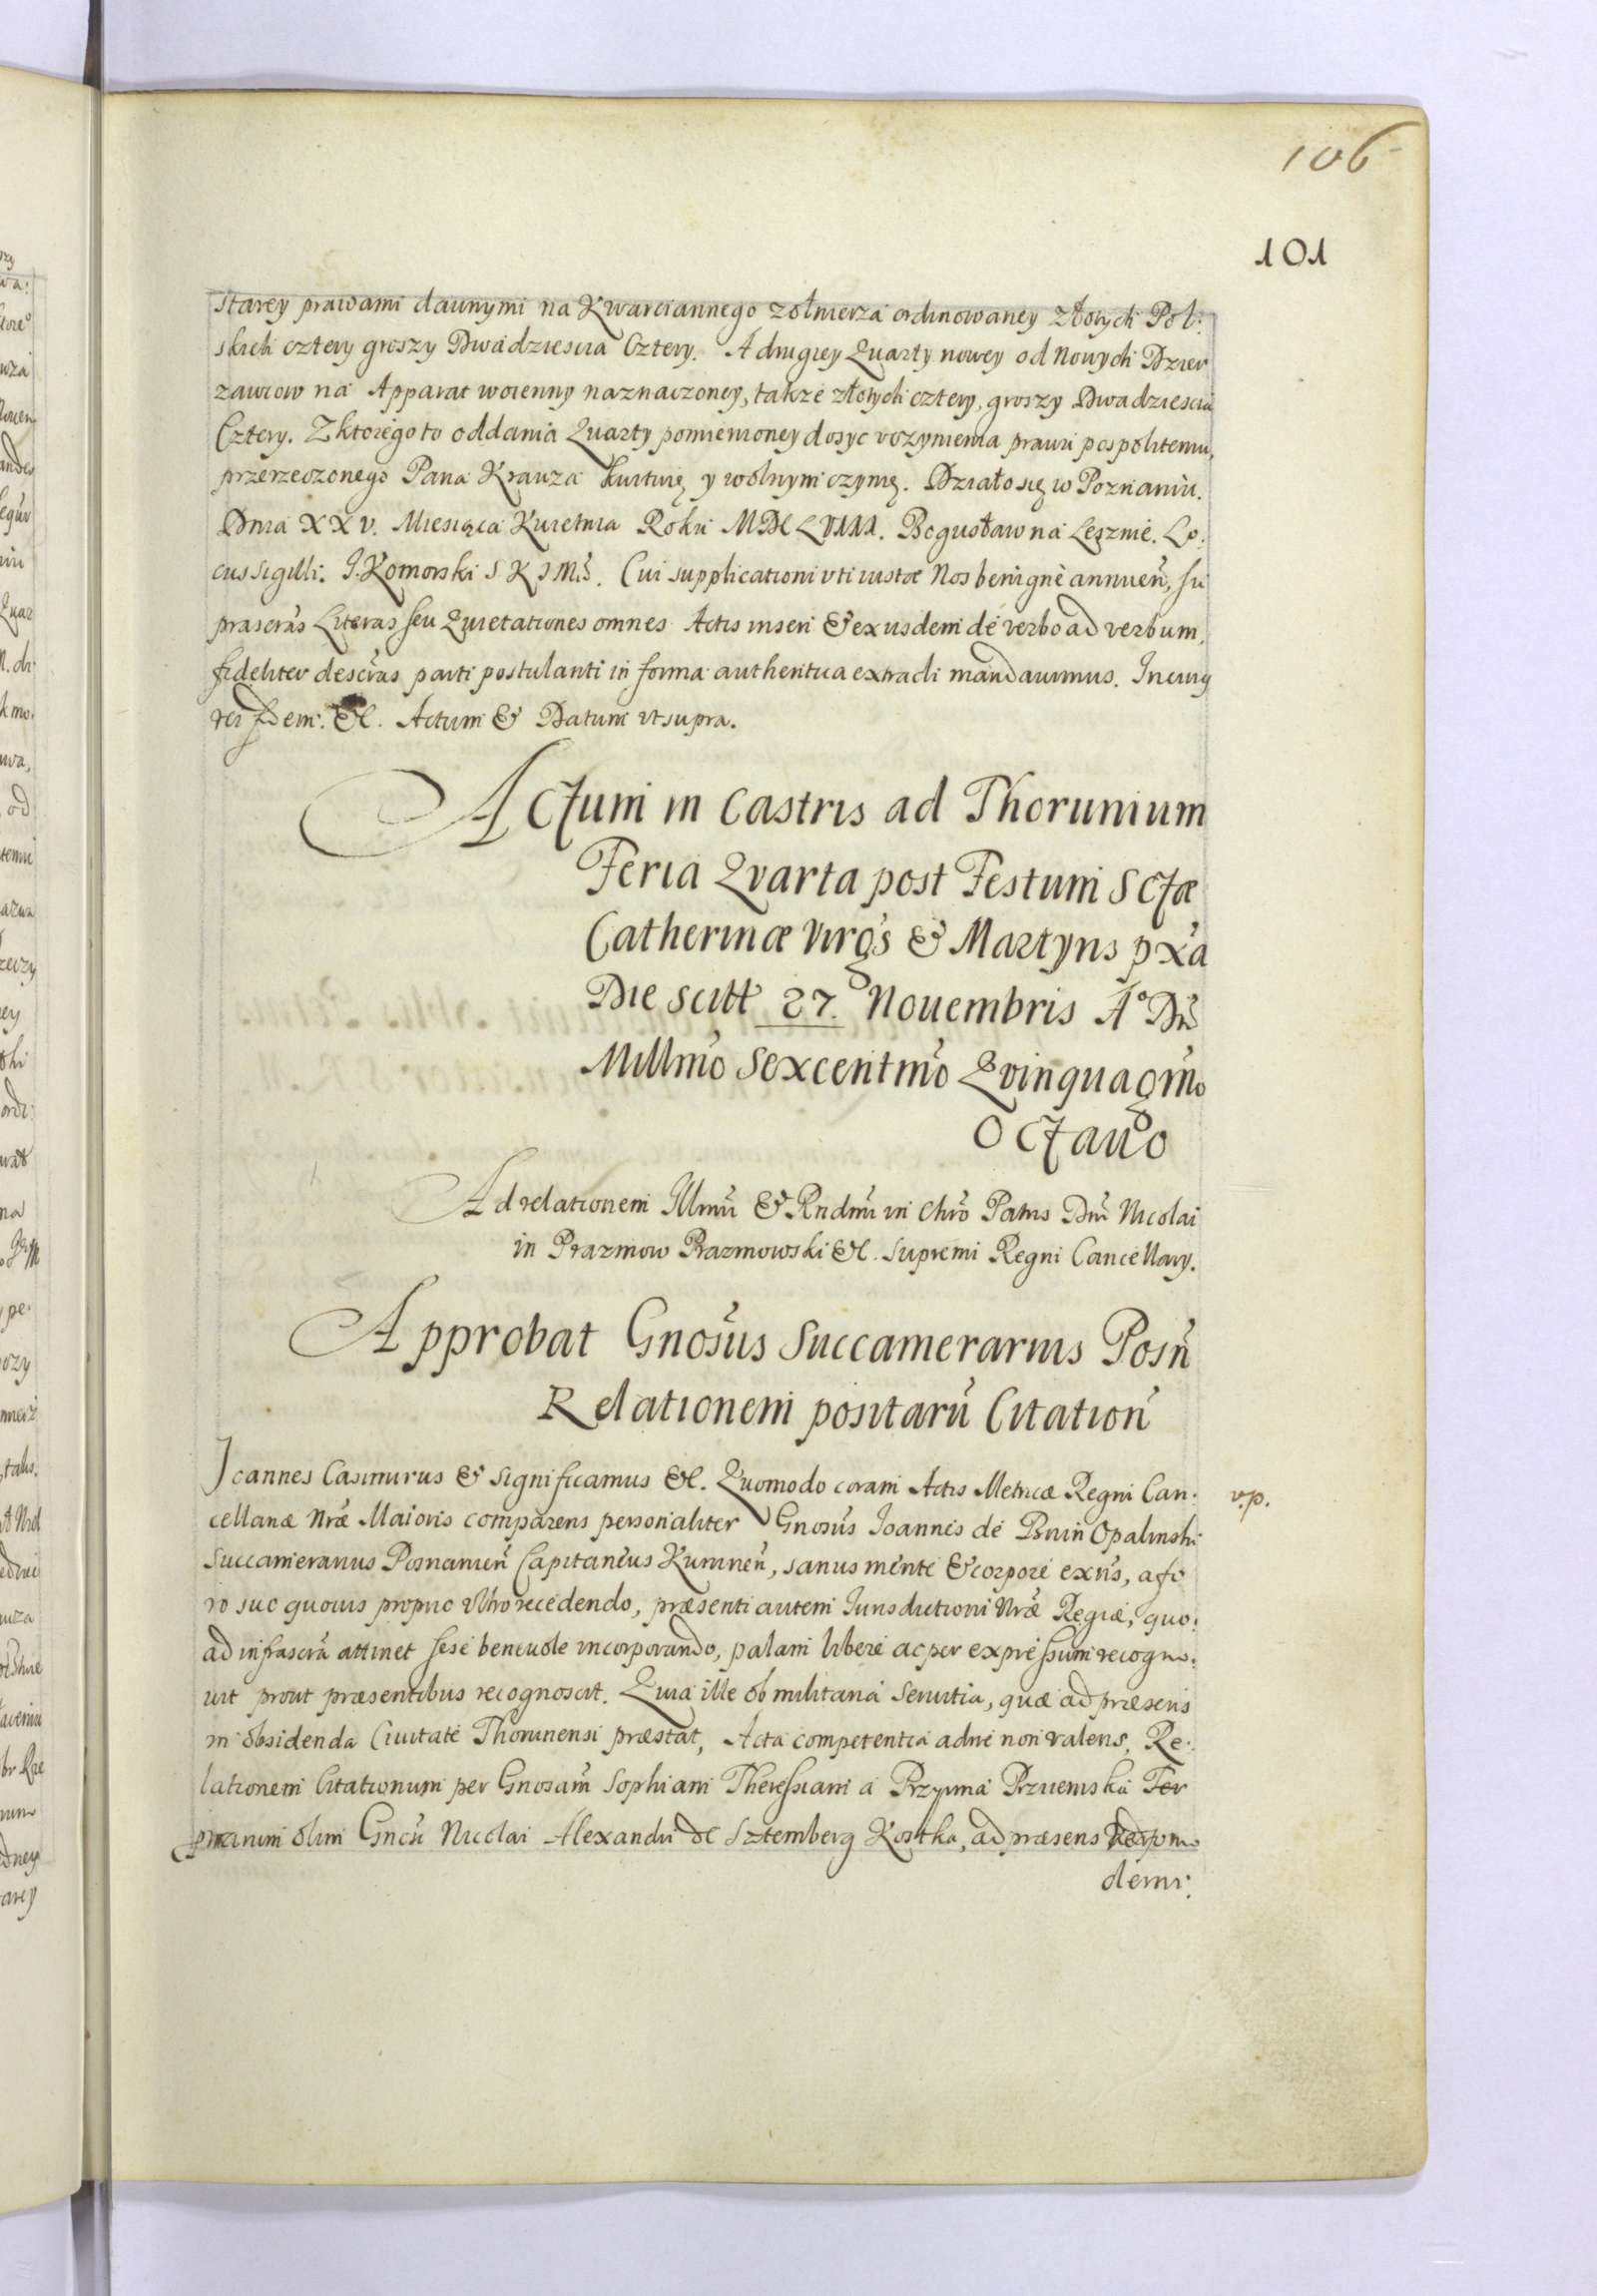 106
101
starey prawami dawnymi na Kwarciannego zołnierza ordinowaney złotych Pol:
skich cztery groszy Dwadziescia Cztery. A drugiey Quarty nowey od Nowych Dzier
zawcow na Apparat woienny naznaczoney, takze złotych cztery, groszy Dwadziescia
Cztery. Z ktorego to oddania Quarty pomienioney dosyc vczynienia prawu pospolitemu,
przerzeczonego Pana Krauza kwituię y wolnym czynię. Działo się w Poznaniu.
Dnia XXV. Miesiąca Kwietnia Roku MDCLVIII. Bogusław na Lesznie. Lo:
cus sigilli. J. Komorski S K J Mci. Cui supplicationi vti iustæ Nos benignè annueñ, su
prascras Literas seu Quietationes omnes Actis inseri & ex usdem de verbo ad verbum,
fideliter descras parti postulanti in forma authentica extradi mandauimus. In cuius
rei fidem. &c. Actum & Datum vt supra.
Actum in Castris ad Thorunium
Feria Qvarta post Festum SCtæ
Catherinæ Virgs & Martyris pxa
Die scitt 27. Nouembris Ao Dni
Millmo Sexcentmo Qvinquagmo
Octauo
Ad relationem Illmi & Rndmi in Chro Patris Dni Nicolai
in Prazmow Prazmowski &c. Supremi Regni Cancellary.
Approbat Gnosus Succamerarius Posn
Relationem positaru Citation
Joannes Casimirus & Significamus &c. Quomodo coram Actis Metricæ Regni Can:
v.p.
cellariæ Nræ Maioris comparens personaliter Gnosus Joannes de Bnin Opalinski
Succamerarius Posnanieñ Capitaneus Kurnneñ, sanus mente & corpore exns, a fo
ro suo quouis proprio vltro recedendo, præsenti autem Iurisdictioni Nræ Regiæ, quo:
ad infrascra attinet sese beneuole incorporando, palam libere ac per expressum recogno:
uit prout præsentibus recognoscit. Quia ille ob militaria seruitia, quæ ad præsens
in obsidenda Ciuitate Thorunensi præstat, Acta competentia adire non valens, Re:
lationem Citationum per Gnosam Sophiam Theressiam a Przyima Przyiemska Per
primum olim Gnsi Nicolai Alexandri de Sztemberg Kostka, ad præsens
demi: